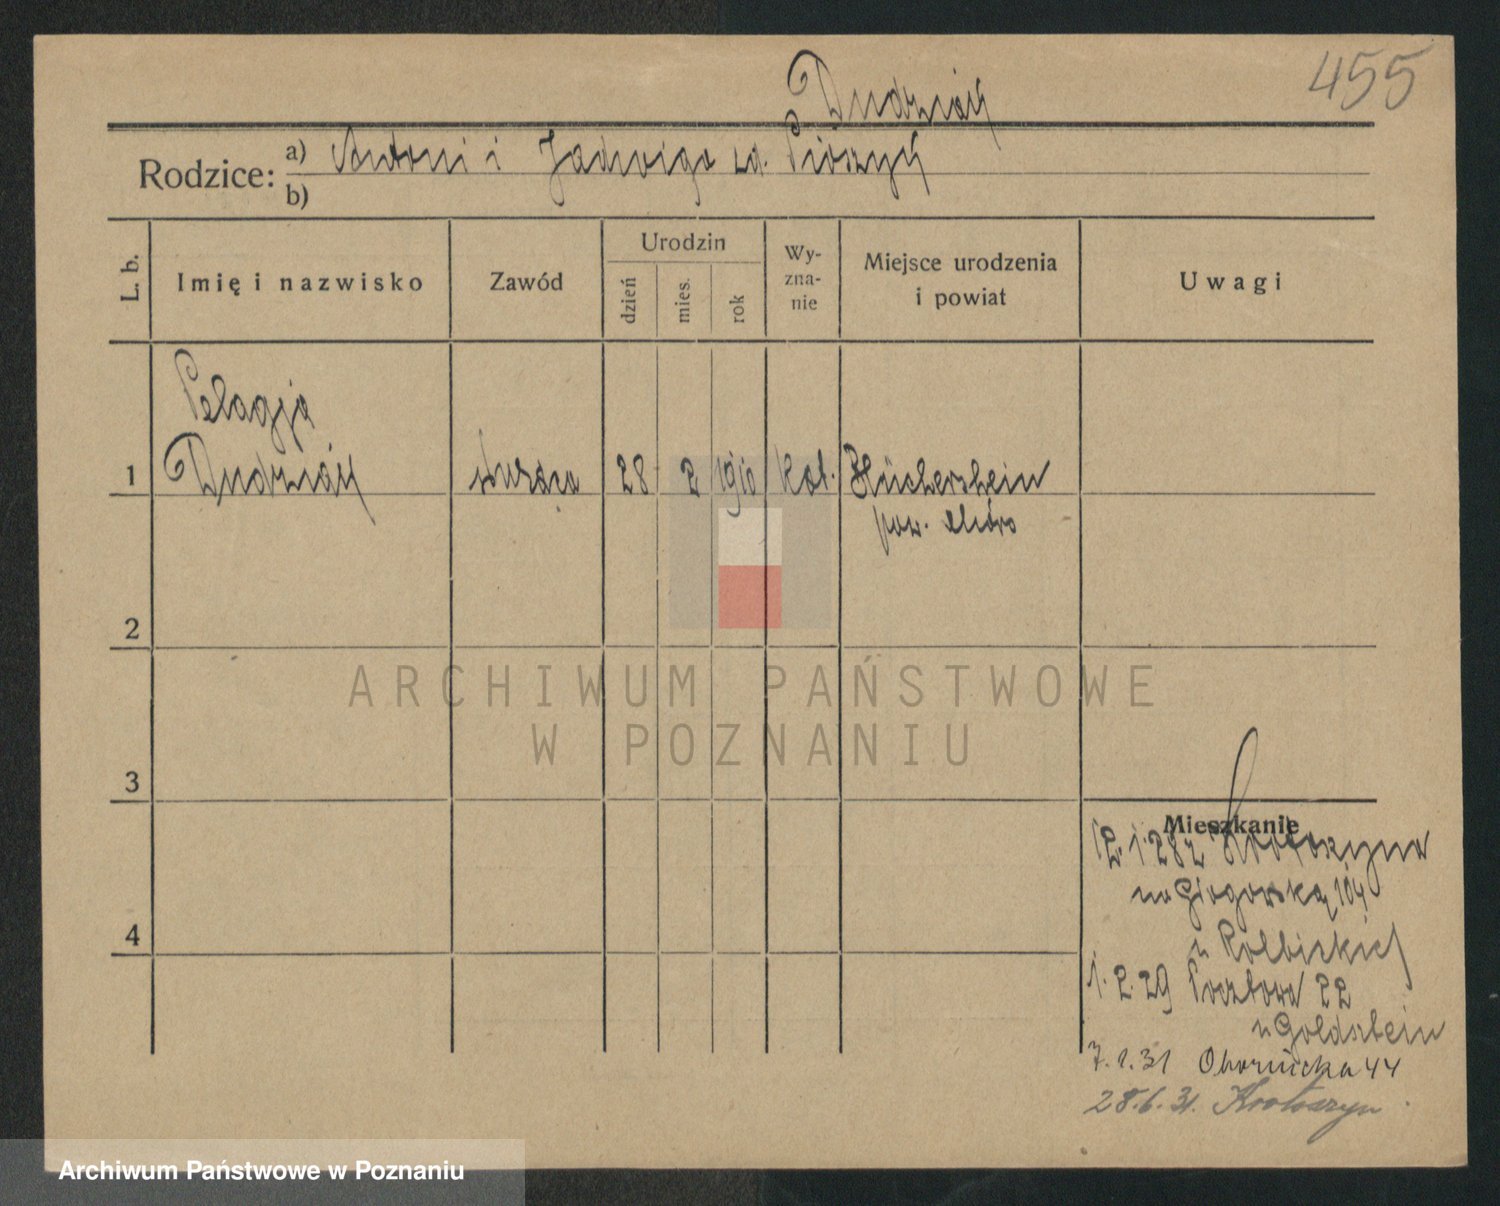 455
Dudziak
Rodzice: a) Antoni i Jadwiga zd.
b)
L. b.
Imię i nazwisko
Zawód
Urodzin
dzień
mies.
rok
Wy-
zna-
nie
Miejsce urodzenia
i powiat
Uwagi
Pelagja
1 Dudziak służąca 28 2 1910 kat.
pow.
2
ARCHIWUM PAŃSTWOWE
W POZNANIU
3
Mieszkanie
12.1.28 z Krotoszyna
104
4
u
1.2.29 Pocztowa 22
u Goldstein
7.1.31 Obornicka 44
28.6.31. Krotoszyn
Archiwum Państwowe w Poznaniu